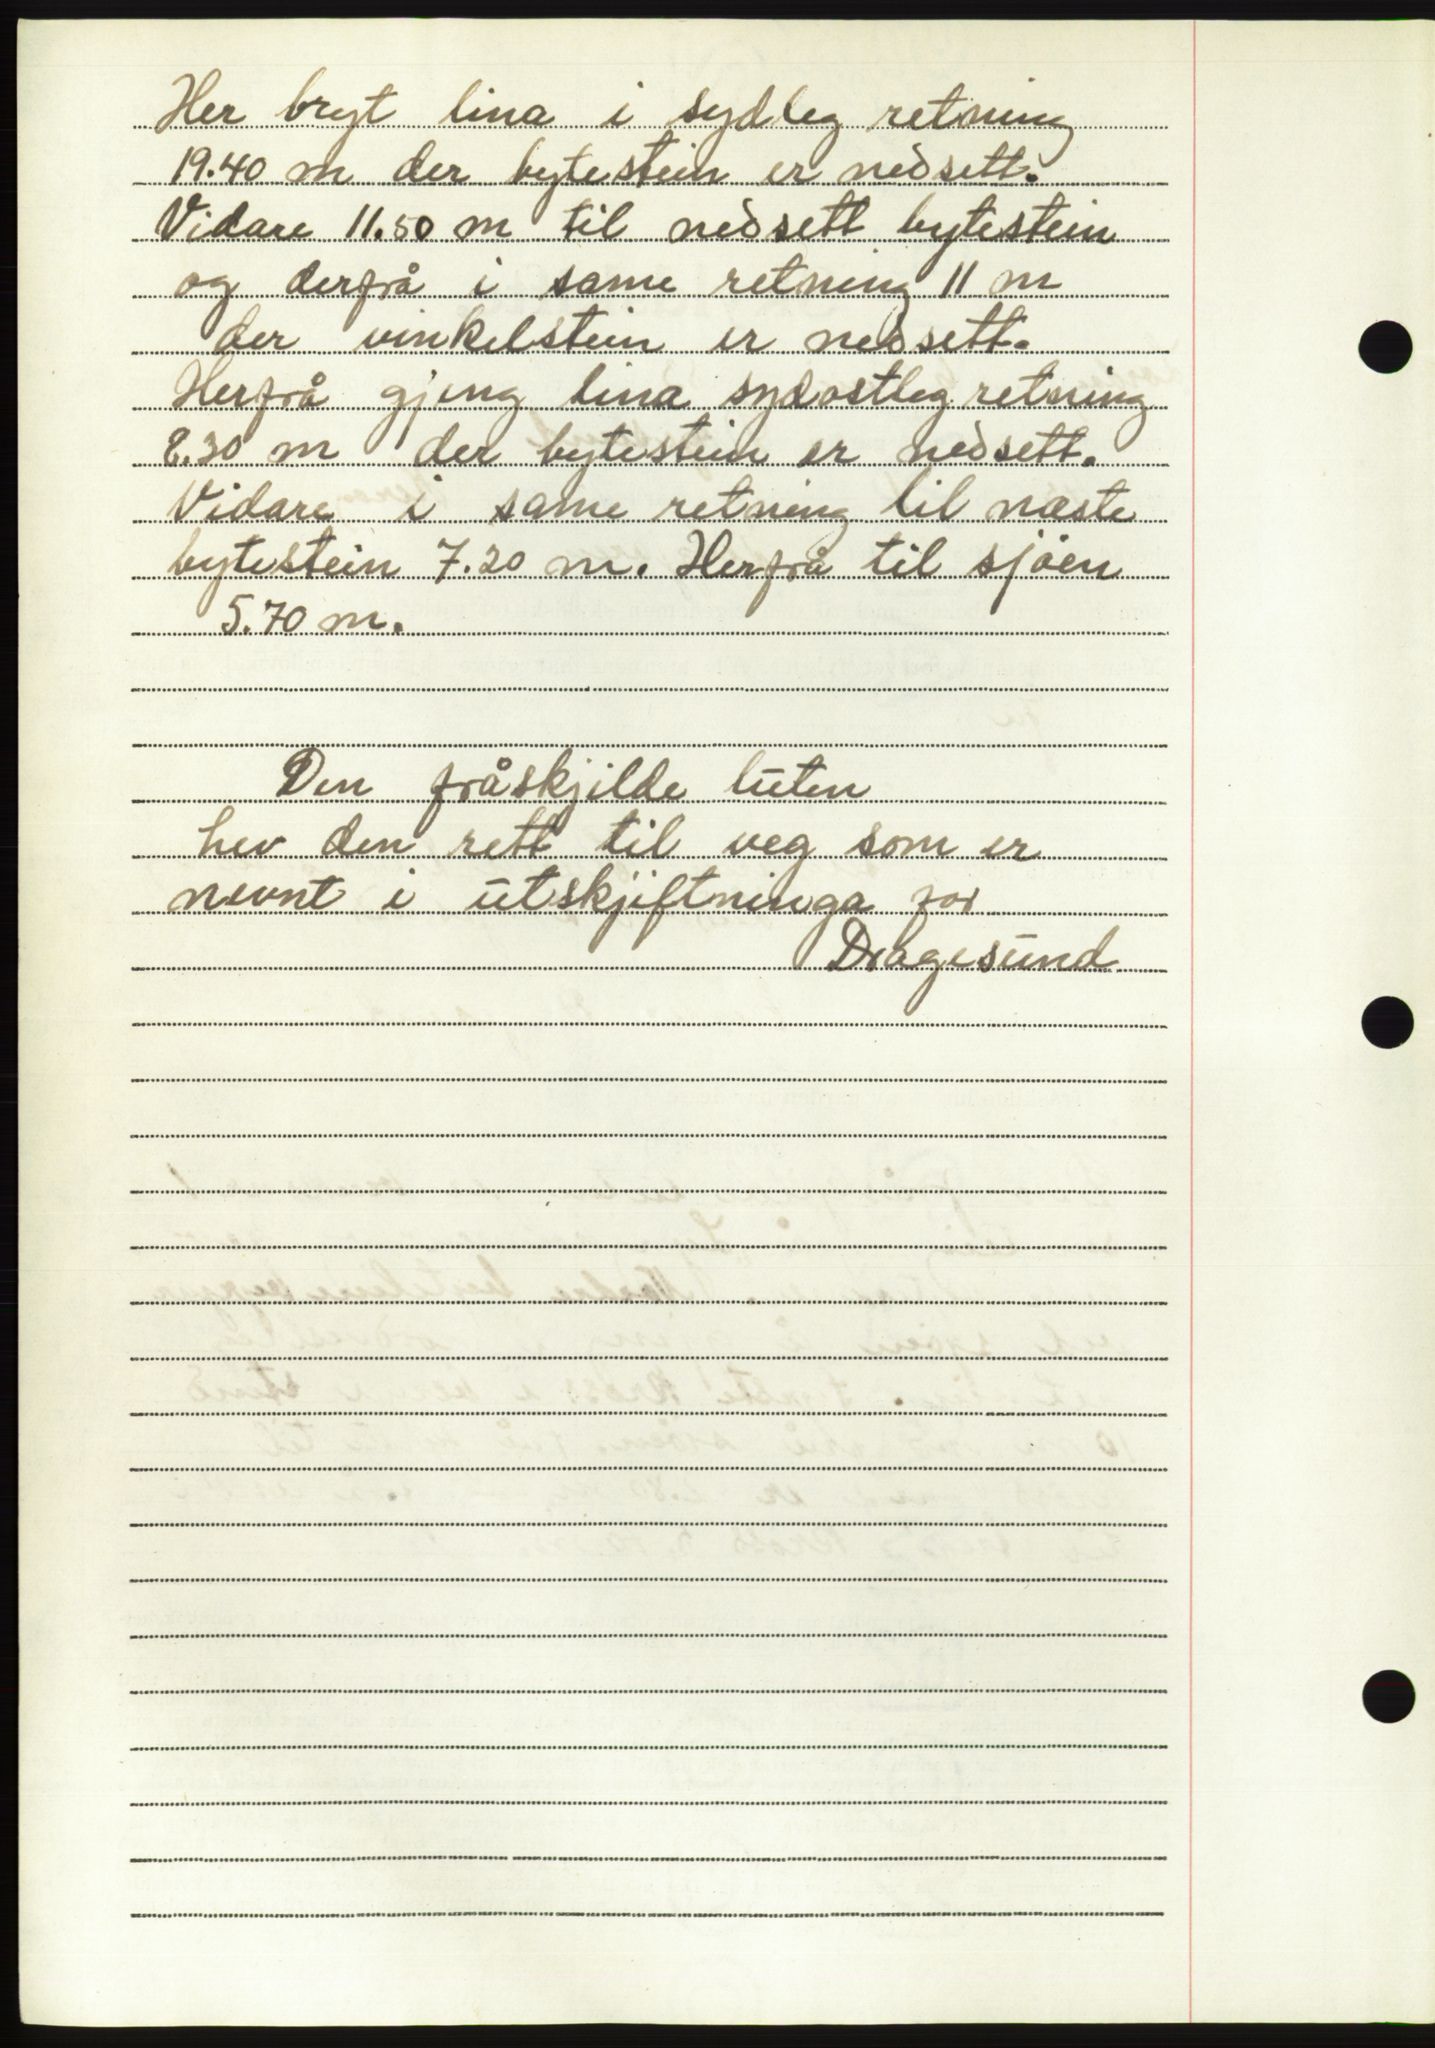 Her bryt lina i sydleg retning
19.40 m der bytestein er nedsett.
Vidare 11.50 m til nedsett bytestein
og derfrå i same retning 11 m
der vinkelstein er nedsett.
Herfrå gjeng lina sydostleg retning
8.30 m der bytestein er nedsett.
Vidare i same retning til næste
bytestein 7.20 m. Herfrå til sjöen
5.70 m.
Den fråskjilde luten
hev den rett til veg som er
nevnt i utskjiftninga for
Dragesund